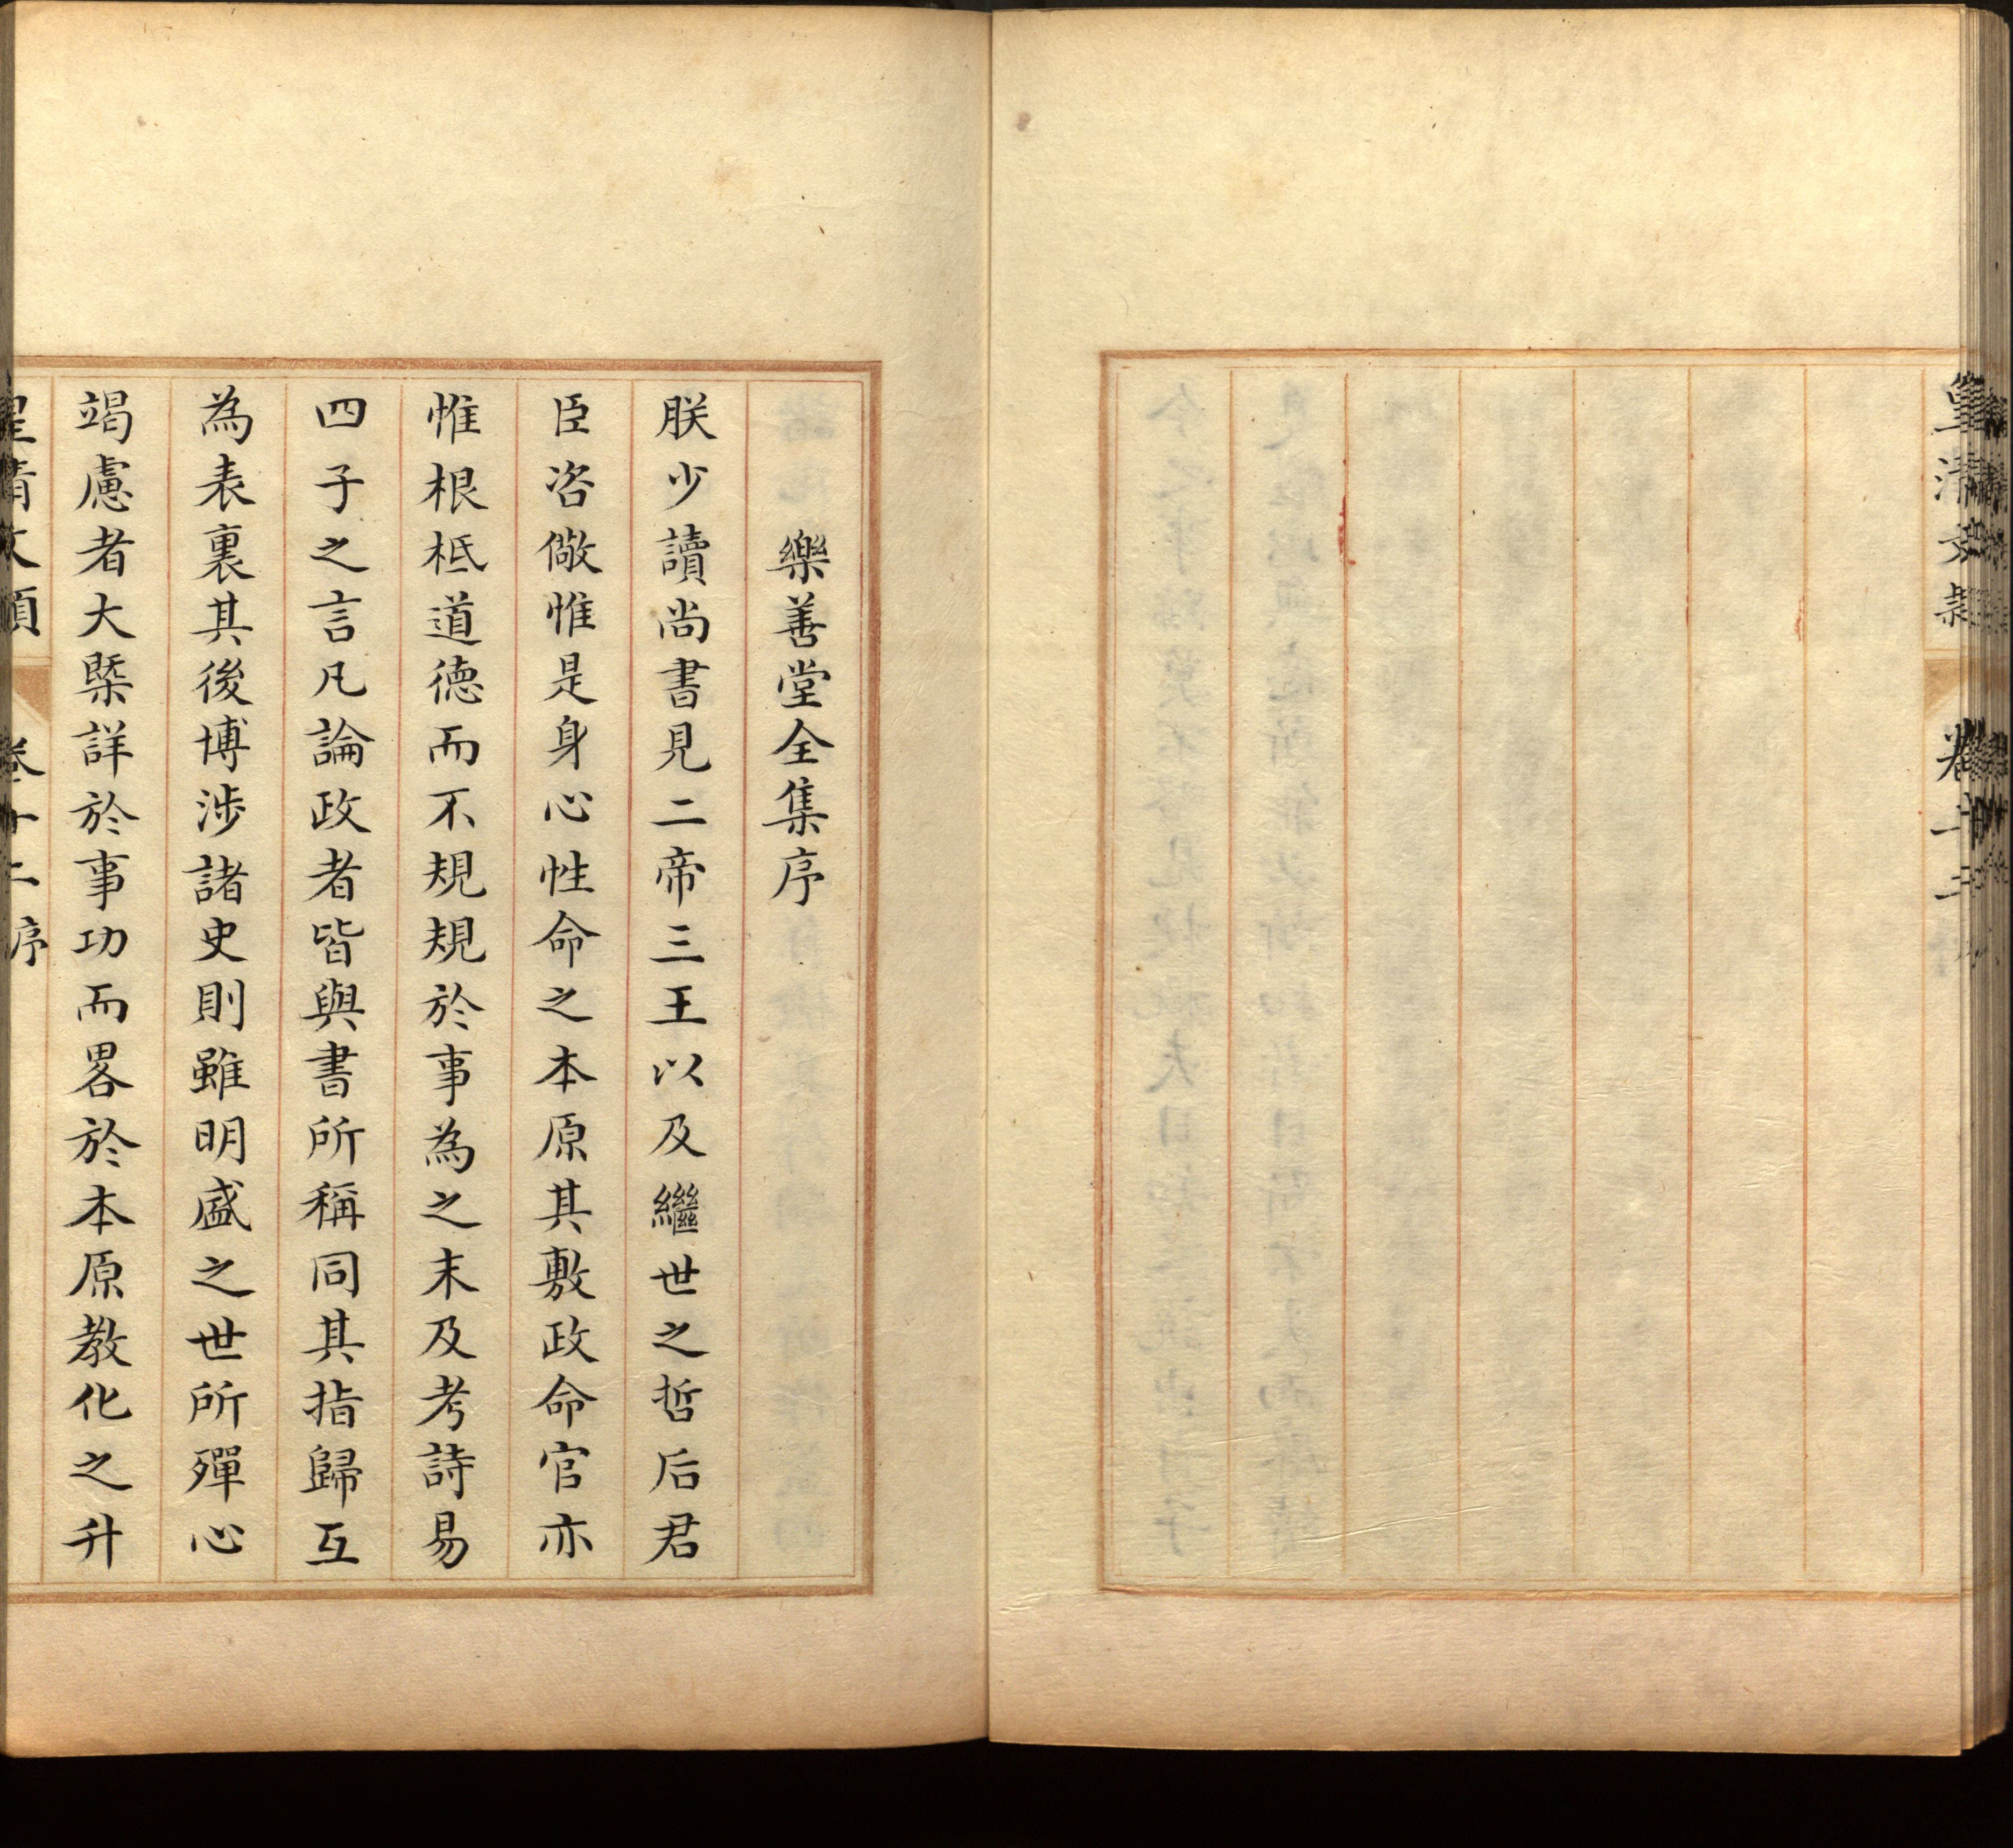 皇清文穎
卷十二
樂善堂全集序
朕少讀尚書見二帝三王以及繼世之哲后君
臣咨儆惟是身心性命之本原其敷政命官亦
惟根柢道德而不規規於事為之末及考詩易
四子之言凡論政者皆與書所稱同其指歸互
為表裏其後博涉諸史則雖明盛之世所殫心
竭慮者大槩詳於事功而畧於本原教化之升
皇清文穎
卷十二序